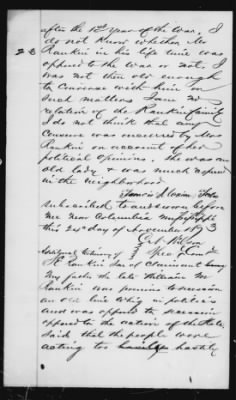 after the 1st year of the war. I
do not know whether Mr
23 Rankin in his life time was
opposed to the war or not. I
was not then old enough
to converse with him on
such matters I am no
relation of the Rankin family
I do not think that any
censure was incurred by Mrs
Rankin on account of her
political opinions. She was an
old lady & was much respected
in the neighborhood.
Subscribed to and sworn before
me near Columbia Mississippi
this 24th day of November 1873
Spec Com
Additional testimony of
Rankin Son of Claimant
My father the late William M
Rankin was previous to secession
an old line Whig in politics
and was opposed to secession
opposed to the action of the State.
Said that the people were
acting too hastily